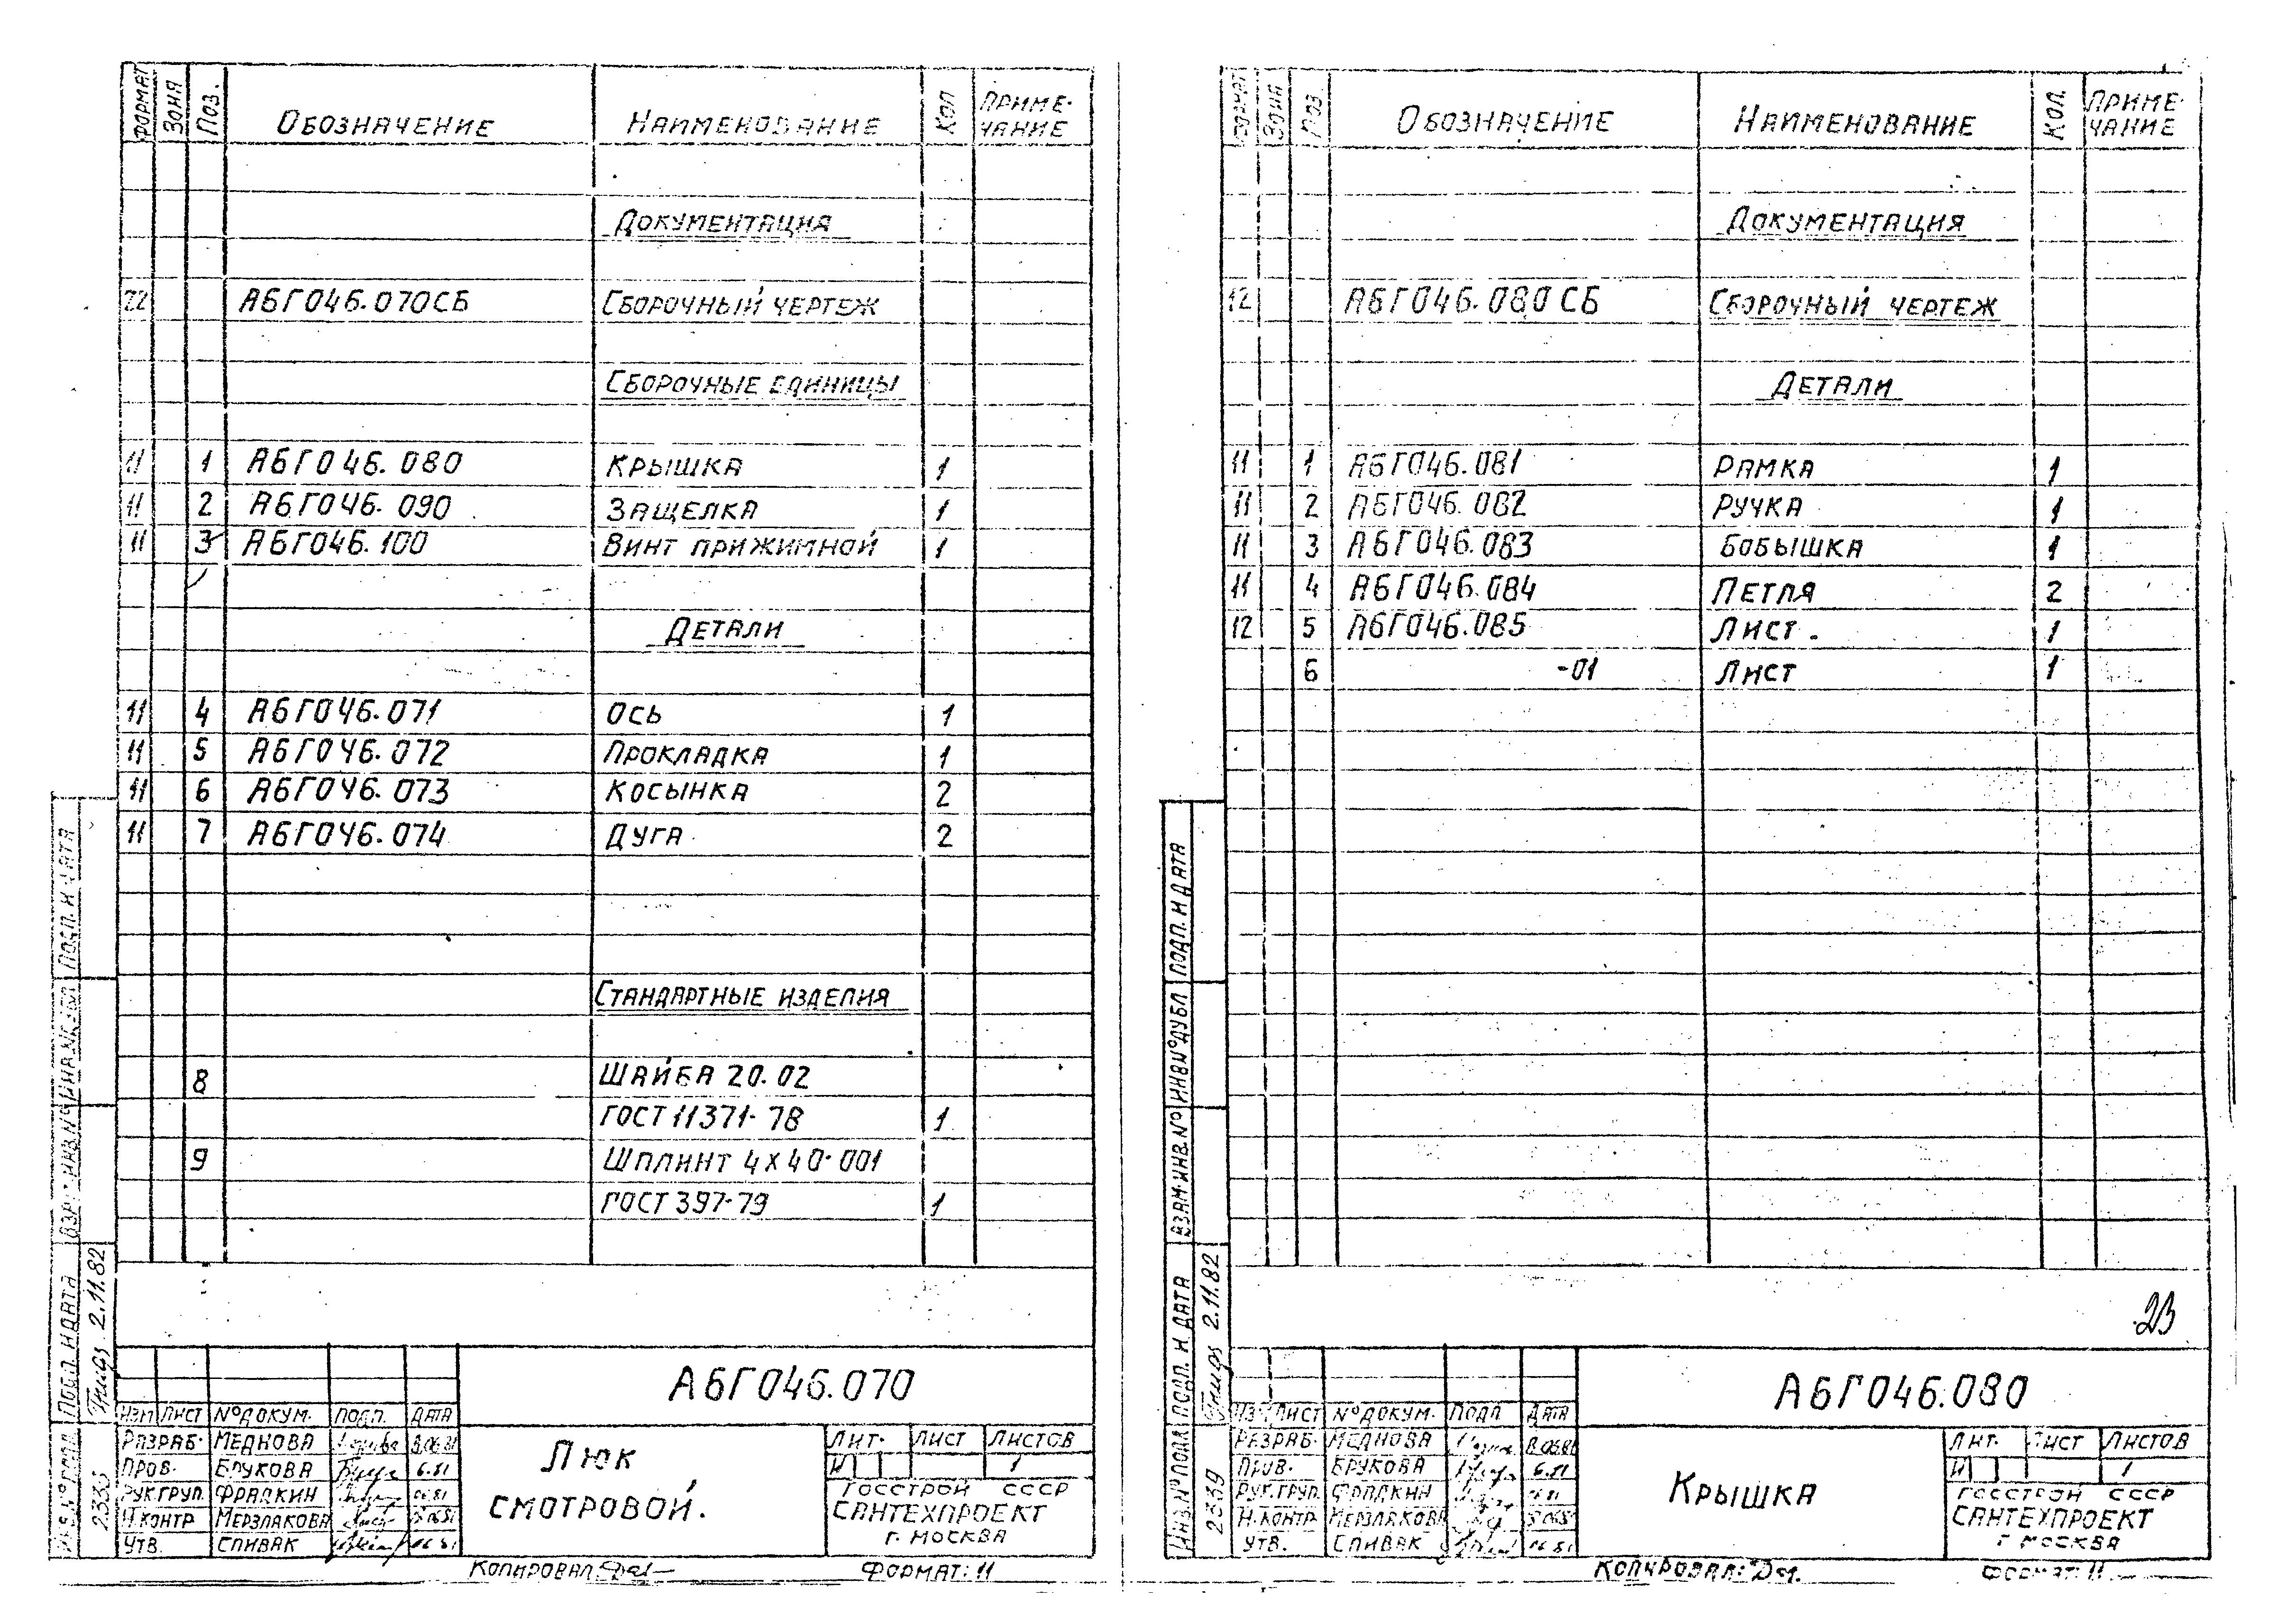 ФОРМАТ ЗОНА ПОЗ. ОБОЗНАЧЕНИЕ НАИМЕНОВАНИЕ КОЛ ПРИМЕ-
ЧАНИЕ
ДОКУМЕНТАЦИЯ
22 А6Г046.070СБ СБОРОЧНЫЙ ЧЕРТЕЖ
СБОРОЧНЫЕ ЕДИНИЦЫ
11 1 А6Г046.080 КРЫШКА 1
11 2 А6Г046.090 ЗАЩЕЛКА 1
11 3 А6Г046.100 ВИНТ ПРИЖИМНОЙ 1
ДЕТАЛИ
11 4 А6Г046.071 ОСЬ 1
11 5 А6Г046.072 ПРОКЛАДКА 1
11 6 А6Г046.073 КОСЫНКА 2
11 7 А6Г046.074 ДУГА 2
СТАНДАРТНЫЕ ИЗДЕЛИЯ
8 ШАЙБА 20.02
ГОСТ 11371-78 1
9 ШПЛИНТ 4Х40-001
ГОСТ 397-79 1
ПОДП. И ДАТА
ВЗАМ. ИНВ.№ ИНВ.№ ДУБЛ
ПОДП. И ДАТА 2.11.82
ИНВ.№ ПОДЛ
А6Г046.070
ИЗМ ЛИСТ №ДОКУМ. ПОДП. ДАТА
РАЗРАБ. МЕДНОВА
ПРОВ. БРУКОВА 6.81
РУК.ГРУП. ФРАДКИН 06.81
Н.КОНТР МЕРЗЛАКОВА
УТВ. СПИВАК 06.81
ЛЮК
СМОТРОВОЙ.
ЛИТ. ЛИСТ ЛИСТОВ
И 1
ГОССТРОЙ СССР
САНТЕХПРОЕКТ
Г. МОСКВА
КОПИРОВАЛ ФОРМАТ: 11
ФОРМАТ ЗОНА ПОЗ. ОБОЗНАЧЕНИЕ НАИМЕНОВАНИЕ КОЛ. ПРИМЕ-
ЧАНИЕ
ДОКУМЕНТАЦИЯ
12 А6Г046.080 СБ СБОРОЧНЫЙ ЧЕРТЕЖ
ДЕТАЛИ
11 1 А6Г046.081 РАМКА 1
11 2 А6Г046.082 РУЧКА 1
11 3 А6Г046.083 БОБЫШКА 1
11 4 А6Г046.084 ПЕТЛЯ 2
12 5 А6Г046.085 ЛИСТ. 1
6 -01 ЛИСТ 1
ПОДП. И ДАТА
ВЗАМ.ИНВ.№ ИНВ.№ДУБЛ
ПОДП. И ДАТА 2.11.82
ИНВ.№ПОДЛ 2339
23
А6Г046.080
ИЗМ ЛИСТ №ДОКУМ. ПОДП ДАТА
РАЗРАБ. МЕДНОВА
ПРОВ. БРУКОВА 6.81
РУК.ГРУП. ФРАДКИН
Н.КОНТР МЕРЗЛАКОВА
УТВ. СПИВАК 06.81
КРЫШКА
ЛИТ. ЛИСТ ЛИСТОВ
И 1
ГОССТРОЙ СССР
САНТЕХПРОЕКТ
Г МОСКВА
КОПИРОВАЛ: ФОРМАТ: 11